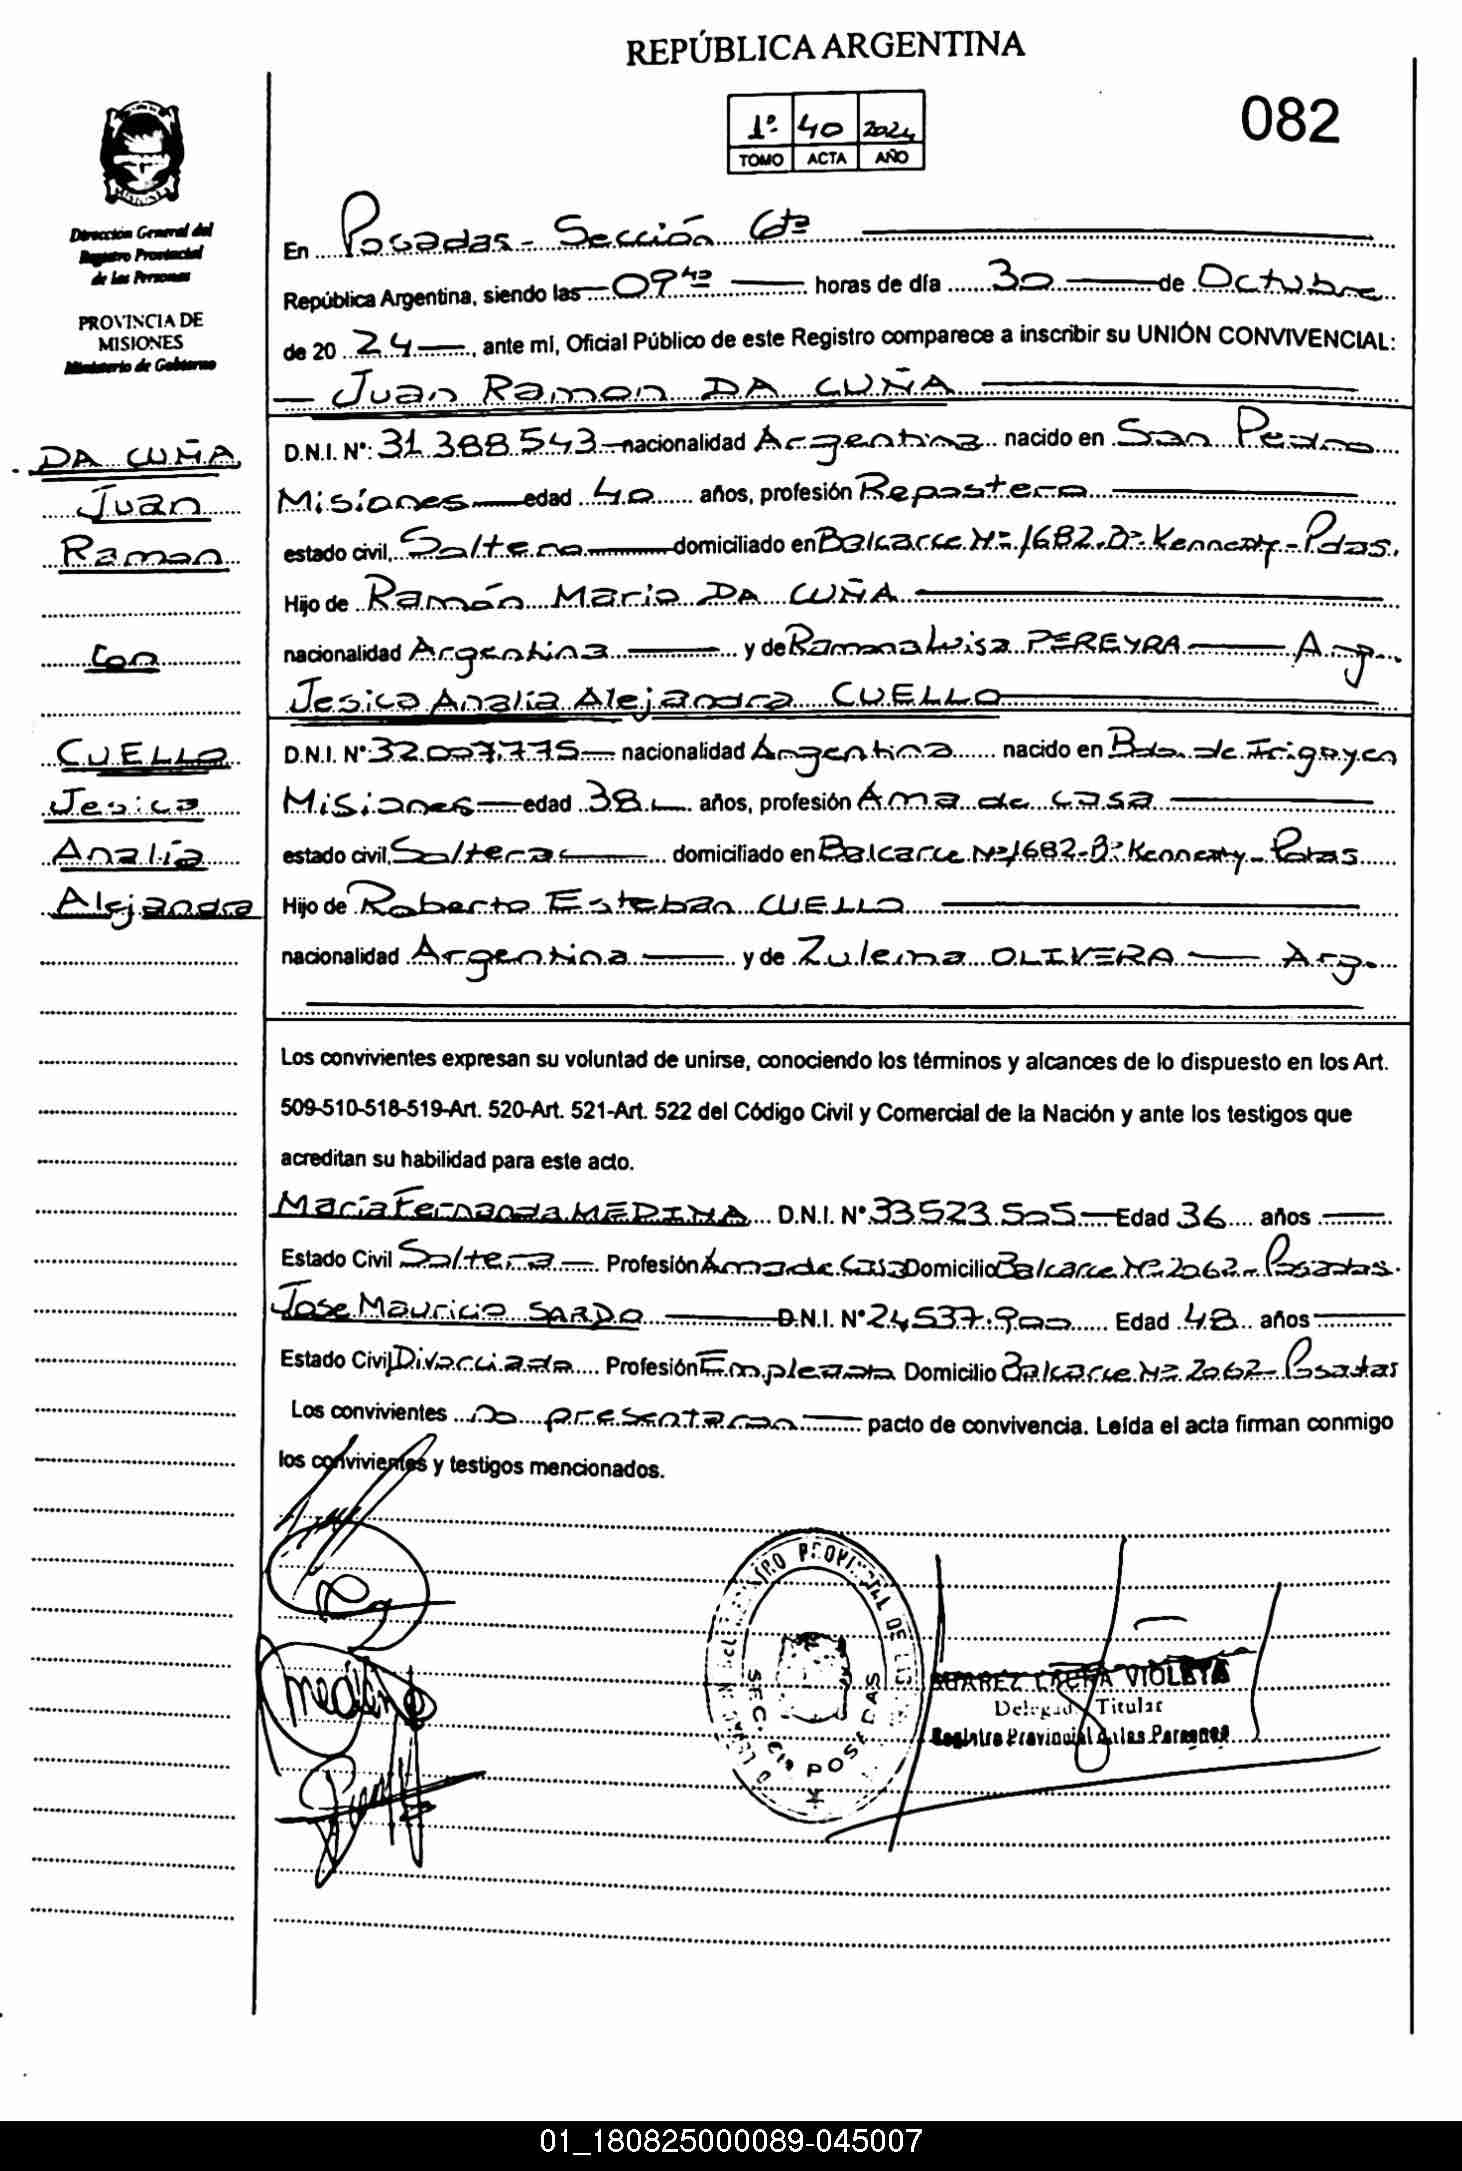 REPÚBLICA ARGENTINA
1º 40 2024
TOMO ACTA AÑO
082
Dirección General del
Registro Provincial
de las Personas
PROVINCIA DE
MISIONES
Ministerio de Gobierno
En Posadas - Sección 6ta
República Argentina, siendo las 09 40 horas de día 30 de Octubre
de 20 24, ante mí, Oficial Público de este Registro comparece a inscribir su UNIÓN CONVIVENCIAL:
Juan Ramon DA CUÑA
DA CUÑA
Juan
Ramon
con
CUELLO
Jesica
Analía
Alejandra
D.N.I. Nº: 31.388.543 nacionalidad Argentina nacido en San Pedro
Misiones edad 40 años, profesión Repostero
estado civil, Soltero domiciliado en Balcarce Nº 1682 Bº Kennedy - Pdas.
Hijo de Ramón Mario DA CUÑA
nacionalidad Argentina y de Ramona Luisa PEREYRA Arg.
Jesica Analía Alejandra CUELLO
D.N.I. Nº 32.007.775 nacionalidad Argentina nacido en Bdo. de Irigoyen
Misiones edad 38 años, profesión Ama de casa
estado civil, Soltera domiciliado en Balcarce Nº 1682 - Bº Kennedy - Pdas
Hijo de Roberto Esteban CUELLO
nacionalidad Argentina y de Zulema OLIVERA Arg.
Los convivientes expresan su voluntad de unirse, conociendo los términos y alcances de lo dispuesto en los Art.
509-510-518-519-Art. 520-Art. 521-Art. 522 del Código Civil y Comercial de la Nación y ante los testigos que
acreditan su habilidad para este acto.
María Fernanda MEDINA D.N.I. Nº 33.523.505 Edad 36 años
Estado Civil Soltera Profesión Ama de Casa Domicilio Balcarce Nº 2062 - Posadas.
Jose Mauricio SARDO D.N.I. Nº 24.537.900 Edad 48 años
Estado Civil Divorciado Profesión Empleado Domicilio Balcarce Nº 2062 - Posadas
Los convivientes no presentaron pacto de convivencia. Leída el acta firman conmigo
los convivientes y testigos mencionados.
medina
REGISTRO PROVINCIAL DE
SEC. 6ta POSADAS
VIOLETA
Delegada Titular
Registro Provincial de las Personas
01_180825000089-045007